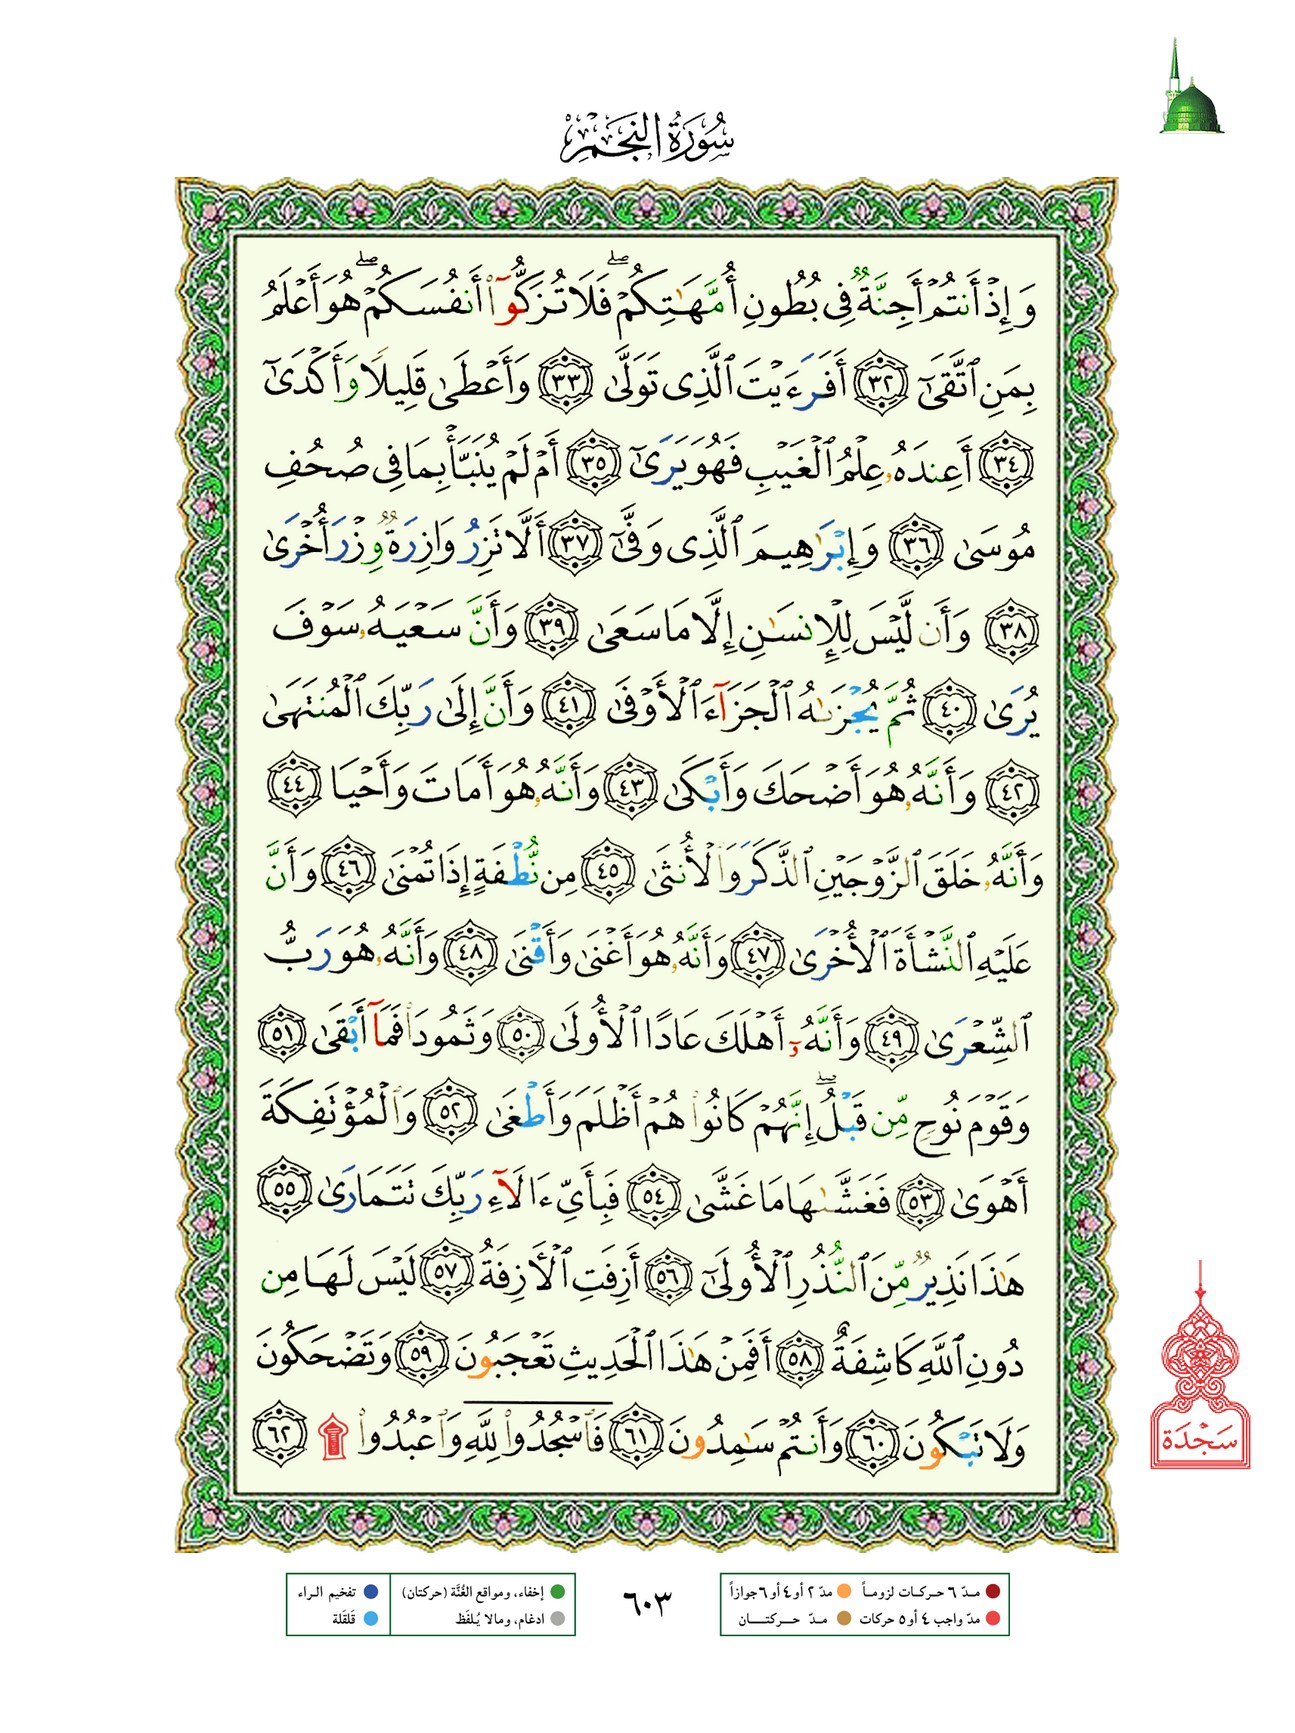 سُورَةُ النَّجْمِ
وَإِذْ أَنتُمْ أَجِنَّةٌ فِى بُطُونِ أُمَّهَٰتِكُمْ ۖ فَلَا تُزَكُّوٓا۟ أَنفُسَكُمْ ۖ هُوَ أَعْلَمُ
بِمَنِ ٱتَّقَىٰٓ ٣٢ أَفَرَءَيْتَ ٱلَّذِى تَوَلَّىٰ ٣٣ وَأَعْطَىٰ قَلِيلًا وَأَكْدَىٰٓ
٣٤ أَعِندَهُۥ عِلْمُ ٱلْغَيْبِ فَهُوَ يَرَىٰٓ ٣٥ أَمْ لَمْ يُنَبَّأْ بِمَا فِى صُحُفِ
مُوسَىٰ ٣٦ وَإِبْرَٰهِيمَ ٱلَّذِى وَفَّىٰٓ ٣٧ أَلَّا تَزِرُ وَازِرَةٌ وِزْرَ أُخْرَىٰ
٣٨ وَأَن لَّيْسَ لِلْإِنسَٰنِ إِلَّا مَا سَعَىٰ ٣٩ وَأَنَّ سَعْيَهُۥ سَوْفَ
يُرَىٰ ٤٠ ثُمَّ يُجْزَىٰهُ ٱلْجَزَآءَ ٱلْأَوْفَىٰ ٤١ وَأَنَّ إِلَىٰ رَبِّكَ ٱلْمُنتَهَىٰ
٤٢ وَأَنَّهُۥ هُوَ أَضْحَكَ وَأَبْكَىٰ ٤٣ وَأَنَّهُۥ هُوَ أَمَاتَ وَأَحْيَا ٤٤
وَأَنَّهُۥ خَلَقَ ٱلزَّوْجَيْنِ ٱلذَّكَرَ وَٱلْأُنثَىٰ ٤٥ مِن نُّطْفَةٍ إِذَا تُمْنَىٰ ٤٦ وَأَنَّ
عَلَيْهِ ٱلنَّشْأَةَ ٱلْأُخْرَىٰ ٤٧ وَأَنَّهُۥ هُوَ أَغْنَىٰ وَأَقْنَىٰ ٤٨ وَأَنَّهُۥ هُوَ رَبُّ
ٱلشِّعْرَىٰ ٤٩ وَأَنَّهُۥٓ أَهْلَكَ عَادًا ٱلْأُولَىٰ ٥٠ وَثَمُودَا۟ فَمَآ أَبْقَىٰ ٥١
وَقَوْمَ نُوحٍ مِّن قَبْلُ ۖ إِنَّهُمْ كَانُوا۟ هُمْ أَظْلَمَ وَأَطْغَىٰ ٥٢ وَٱلْمُؤْتَفِكَةَ
أَهْوَىٰ ٥٣ فَغَشَّىٰهَا مَا غَشَّىٰ ٥٤ فَبِأَىِّ ءَالَآءِ رَبِّكَ تَتَمَارَىٰ ٥٥
هَٰذَا نَذِيرٌ مِّنَ ٱلنُّذُرِ ٱلْأُولَىٰٓ ٥٦ أَزِفَتِ ٱلْءَازِفَةُ ٥٧ لَيْسَ لَهَا مِن
دُونِ ٱللَّهِ كَاشِفَةٌ ٥٨ أَفَمِنْ هَٰذَا ٱلْحَدِيثِ تَعْجَبُونَ ٥٩ وَتَضْحَكُونَ
وَلَا تَبْكُونَ ٦٠ وَأَنتُمْ سَٰمِدُونَ ٦١ فَٱسْجُدُوا۟ لِلَّهِ وَٱعْبُدُوا۟ ۩ ٦٢
سَجْدَة
مدّ ٦ حركات لزوماً
مدّ ٢ أو ٤ أو ٦ جوازاً
مدّ واجب ٤ أو ٥ حركات
مدّ حركتان
٦٠٣
إخفاء، ومواقع الغُنَّة (حركتان)
تفخيم الراء
ادغام، ومالا يُلفَظ
قلقَلة